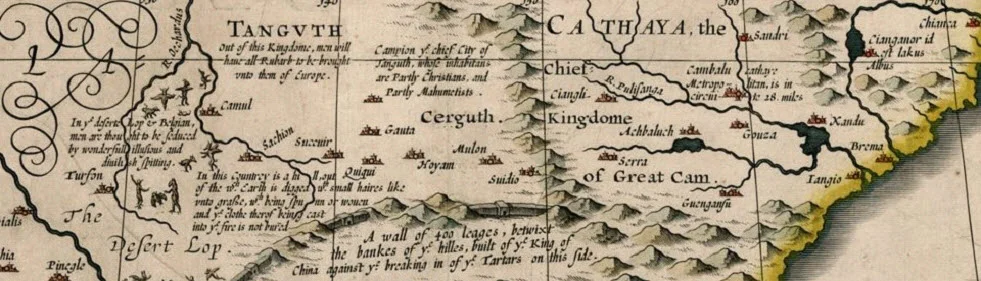 TANGVTH
out of this Kingdome, men will
haue all Rubarb to be brought
vnto them of Europe.
Campion yͤ chief City of
Tanguth, whose inhabitans
are Partly Christians, and
Partly Mahumetists.
CATHAYA, the
Chief
Kingdome
of Great Cam.
Sandri
Chianca
Cianganor id
est lakus
Albus
Cambalu
Cathaye
Metropo litan, is in
circuit 28. miles
R. Pulisanga
Ciangli
Cerguth.
Achbaluch
Gouza
Xandu
Brema
Iangio
Serra
Guengangu
Camul
In yͤ deserts Lop & Belgian,
men are thought to be seduced
by wonderfull illusions and
diuilish spitting.
Sachion
Succuir
Quiqui
Gauta
Hoyam
Mulon
Suidio
Turfon
In this Countrey is a hill out
of the wᶜ Earth is digged wͭ small haires like
vnto grasse, wᶜ being spunn or wouen
and yͤ clothe therof being cast
into yͤ fire is not burned
The
Desert Lop.
Pinegle
A wall of 400 leages, betwixt
the bankes of yͤ hilles, built of yͤ King of
China against yͤ breaking in of yͤ Tartars on this side.